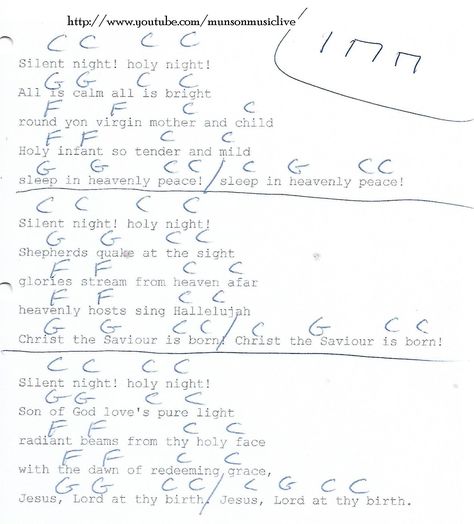 http://www.youtube.com/munsonmusiclive/
C C C C
Silent night! holy night!
G G C C
All is calm all is bright
F F C C
round yon virgin mother and child
F F C C
Holy infant so tender and mild
G G C C / C G C C
sleep in heavenly peace! sleep in heavenly peace!
C C C C
Silent night! holy night!
G G C C
Shepherds quake at the sight
F F C C
glories stream from heaven afar
F F C C
heavenly hosts sing Hallelujah
G G C C / C G C C
Christ the Saviour is born! Christ the Saviour is born!
C C C C
Silent night! holy night!
G G C C
Son of God love's pure light
F F C C
radiant beams from thy holy face
F F C C
with the dawn of redeeming grace,
G G C C / C G C C
Jesus, Lord at thy birth. Jesus, Lord at thy birth.